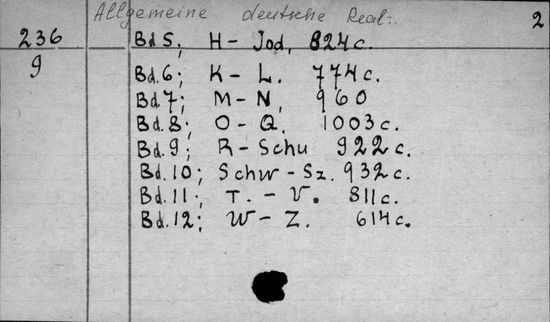 Allgemeine deutsche Real- 2
236 Bd 5; H - Jod, 824 c.
9 Bd. 6; K - L. 774 c.
Bd 7; M - N, 960
Bd. 8; O - Q. 1003 c.
Bd. 9; R - Schu 922 c.
Bd. 10; Schw - Sz. 932 c.
Bd. 11; T. - V. 811 c.
Bd. 12; W - Z. 614 c.